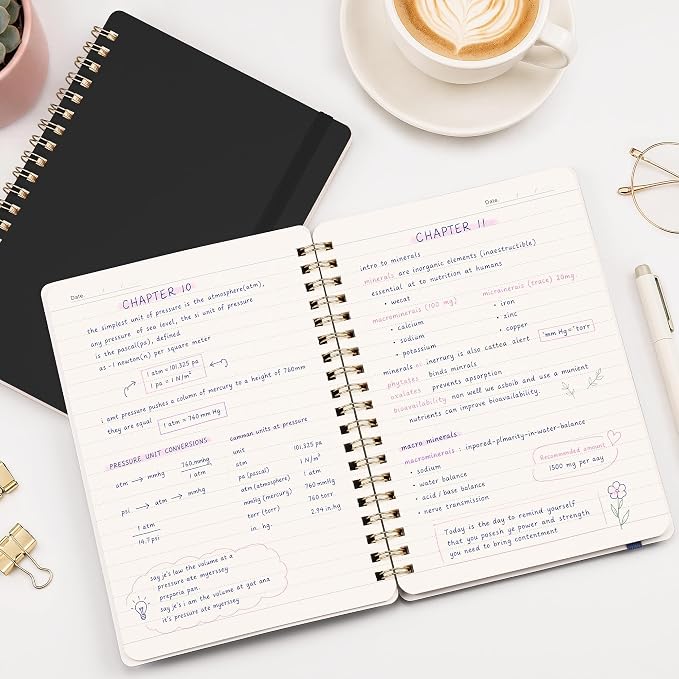 Date
CHAPTER 10
the simplest unit of pressure is the atmosphere(atm),
any pressure of sea level, the si unit of pressure
is the pascal(pa), defined
as - 1 newton(n) per square meter
1 atm = 101,325 pa
1 pa = 1 N/m²
1 amt pressure pushes a column of mercury to a height of 760mm
they are equal 1 atm = 760 mm Hg
PRESSURE UNIT CONVERSIONS
atm → mmhg 760 mmhg
1 atm
psi → atm → mmhg
1 atm
14.7 psi
camman units at pressure
unit 101,325 pa
atm 1 N/m²
pa (pascal) 1 atm
atm (atmosphere) 760 mmHg
mmHg (mercury) 760 torr
torr (torr) 2.99 in.hg
in. hg.
say je's law the volume at a
pressure ate myerssey
preporia pan.
say je's i am the volume at gat ana
it's pressure ate myerssey
Date
CHAPTER 11
intro to minerals
minerals are inorganic elements (inaestructible)
essential at to nutrition at humans
• wecat
macrominerals (100 mg)
• calcium
• sodium
• potassium
micrainerais (trace) 20mg
• iron
• zinc
• copper
"mm Hg=" torr
minerals in inerrury is also cattea alert
phytases binds minrals
oxalates prevents apsorption
bioavailability non well we asboib and use a munient
nutrients can improve bioavailability.
macro minerals
macrominerals : inpored-plmarity-in-water-balance
• sodium
• water balance
• acid / base balance
• nerve transmission
Recommended amount
1500 mg per aay
Today is the day to remind yourself
that you posesh ye power and strength
you need to bring contentment